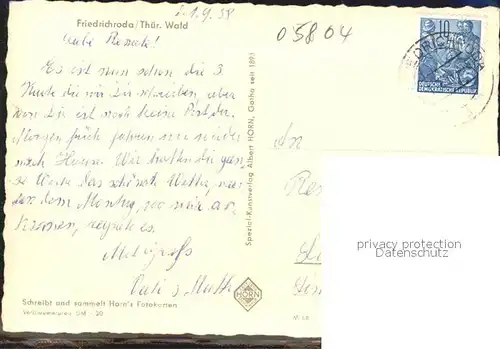 Friedrichroda/Thür. Wald
d. 1.9.58
05804
Liebe Renate!
Es ist nun schon die 3.
Karte die wir Dir schreiben aber
von Dir ist noch keine Post da.
Morgen früh fahren wir wieder
nach Hause. Wir hatten die gan-
ze Woche das schönste Wetter, nur
der dem Montag, wo wir a
kamen, regnete es.
Mit Gruß
Vati u. Mutti
Schreibt und sammelt Horn's Fotokarten
Verbraucherpreis DM -.20
Spezial-Kunstverlag Albert HORN, Gotha seit 1891
HORN
An
10
DEUTSCHE
DEMOKRATISCHE REPUBLIK
privacy protection
Datenschutz